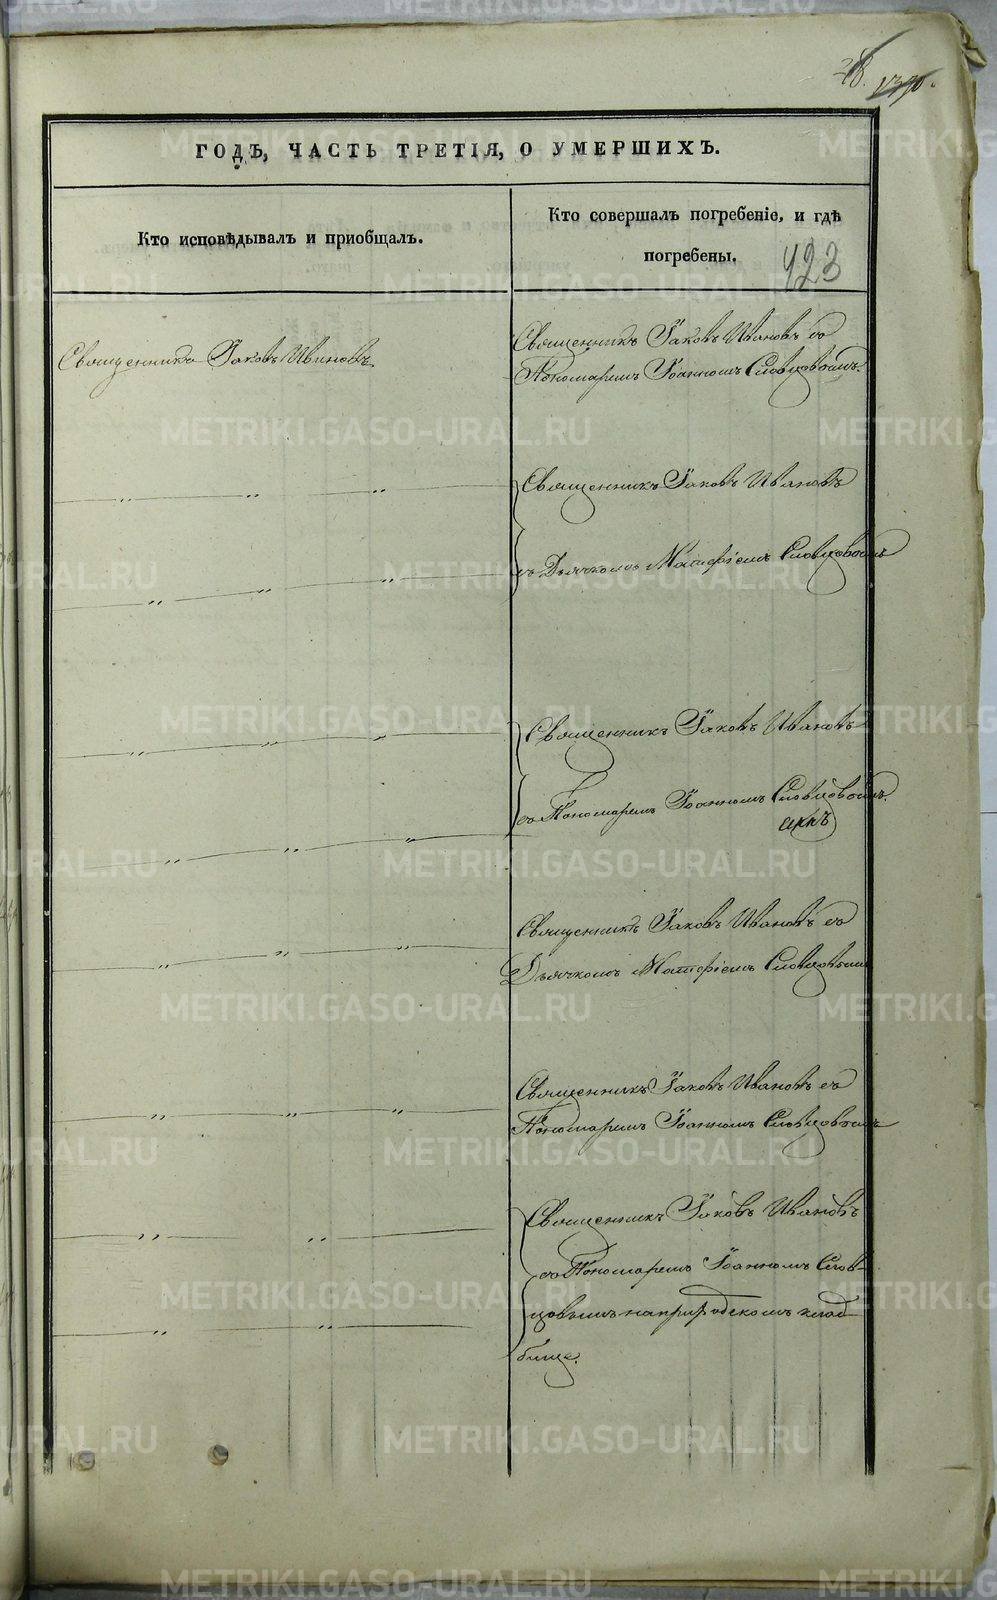 28. 1370.
ГОДЪ, ЧАСТЬ ТРЕТІЯ, О УМЕРШИХЪ.
Кто исповѣдывалъ и пріобщалъ.
Кто совершалъ погребеніе, и гдѣ
погребены.
423
Священникъ Іаковъ Ивановъ
Священникъ Іаковъ Ивановъ съ
Пономаремъ Іоанномъ Словцовымъ.
„ „ „
Священникъ Іаковъ Ивановъ
„ „ „
съ Дьячкомъ Матфіемъ Словцовымъ
„ „ „
Священникъ Іаковъ Ивановъ
„ „ „
съ Пономаремъ Іоанномъ Словцовымъ.
„ „ „
Священникъ Іаковъ Ивановъ съ
Дьячкомъ Матфіемъ Словцовымъ
„ „ „
Священникъ Іаковъ Ивановъ съ
Пономаремъ Іоанномъ Словцовымъ
„ „
Священникъ Іаковъ Ивановъ
съ Пономаремъ Іоанномъ Слов-
„ „
цовымъ на приходскомъ клад-
бище.
METRIKI.GASO-URAL.RU